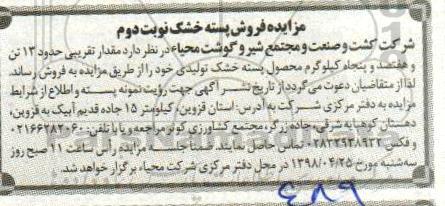 مزایده فروش پسته خشک نوبت دوم
شرکت کشت و صنعت و مجتمع شیر و گوشت محیاء در نظر دارد مقدار تقریبی حدود ۱۳ تن
و هفتصد و پنجاه کیلوگرم محصول پسته خشک تولیدی خود را از طریق مزایده به فروش رساند.
لذا از متقاضیان دعوت می گردد از تاریخ نشر آگهی جهت رؤیت نمونه پسته و اطلاع از شرایط
مزایده به دفتر مرکزی شرکت به آدرس: استان قزوین، کیلومتر ۱۵ جاده قدیم آبیک به قزوین،
دهستان کوهپایه شرقی، جاده زرگر، مجتمع کشاورزی کوثر مراجعه و یا با تلفن: ۰۲۱۶۶۲۸۲۰۶۰۰
و فکس ۰۲۸۳۲۹۳۸۹۳۳ تماس حاصل نمایند. ضمنا جلسه مزایده راس ساعت ۱۱ صبح روز
سه شنبه مورخ ۱۳۹۸/۰۴/۲۵ در محل دفتر مرکزی شرکت محیاء برگزار خواهد شد.
۴۸۹